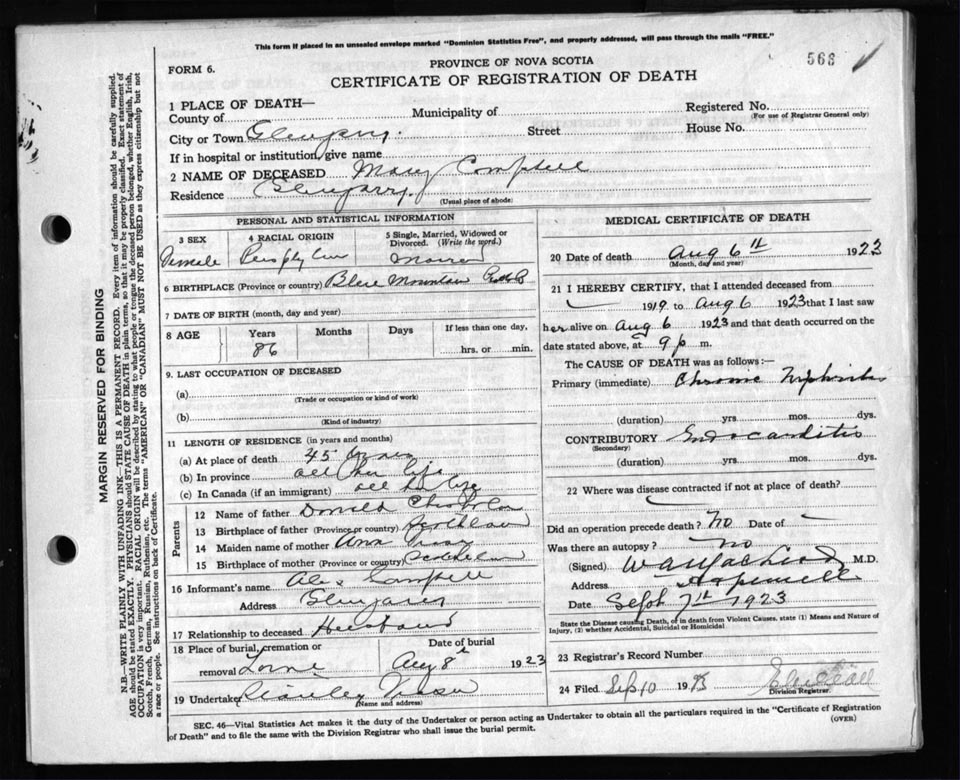 This form if placed in an unsealed envelope marked "Dominion Statistics Free", and properly addressed, will pass through the mails "FREE."
568
FORM 6.
PROVINCE OF NOVA SCOTIA
CERTIFICATE OF REGISTRATION OF DEATH
MARGIN RESERVED FOR BINDING
N.B.—WRITE PLAINLY WITH UNFADING INK—THIS IS A PERMANENT RECORD. Every item of information should be carefully supplied.
AGE should be stated EXACTLY. PHYSICIANS should STATE CAUSE OF DEATH in plain terms, so that it may be properly classified. Exact statement of
OCCUPATION is very important. RACIAL ORIGIN will be described by stating to what people or tongue the deceased person belonged, whether English, Irish,
Scotch, French, German, Russian, Ruthenian, etc. The terms "AMERICAN" or "CANADIAN" MUST NOT BE USED as they express citizenship but not
a race or people. See instructions on back of Certificate.
1 PLACE OF DEATH—
County of Municipality of Registered No.
(For use of Registrar General only)
City or Town Glengarry. Street House No.
If in hospital or institution, give name
2 NAME OF DECEASED Mary Campbell
Residence Glengarry.
(Usual place of abode)
PERSONAL AND STATISTICAL INFORMATION
3 SEX
Female
4 RACIAL ORIGIN
5 Single, Married, Widowed or
Divorced. (Write the word.)
Married
6 BIRTHPLACE (Province or country) Blue Mountain
7 DATE OF BIRTH (month, day and year)
8 AGE Years Months Days If less than one day,
86 hrs. or min.
9. LAST OCCUPATION OF DECEASED
(a)
(Trade or occupation or kind of work)
(b)
(Kind of industry)
11 LENGTH OF RESIDENCE (in years and months)
(a) At place of death 45 years
(b) In province all her life
(c) In Canada (if an immigrant) all her life
Parents
12 Name of father Donald Chisholm
13 Birthplace of father (Province or country) Scotland
14 Maiden name of mother Ann
15 Birthplace of mother (Province or country) Scotland
16 Informant's name Alex Campbell
Address Glengarry
17 Relationship to deceased Husband
18 Place of burial, cremation or Date of burial
removal Lorne Aug 8th 1923
19 Undertaker Stanley Fraser
(Name and address)
MEDICAL CERTIFICATE OF DEATH
20 Date of death Aug 6th 1923
(Month, day and year)
21 I HEREBY CERTIFY, that I attended deceased from
1919 to Aug 6 1923 that I last saw
her alive on Aug 6 1923 and that death occurred on the
date stated above, at 9 p m.
The CAUSE OF DEATH was as follows:—
Primary (immediate) Chronic Nephritis
(duration) yrs. mos. dys.
CONTRIBUTORY Endocarditis
(Secondary)
(duration) yrs. mos. dys.
22 Where was disease contracted if not at place of death?
Did an operation precede death? No Date of —
Was there an autopsy? no
(Signed) M.D.
Address Hopewell
Date Sept 7th 1923
State the Disease causing Death, or in death from Violent Causes. state (1) Means and Nature of
Injury, (2) whether Accidental, Suicidal or Homicidal
23 Registrar's Record Number
24 Filed Sep 10 1923
Division Registrar.
SEC. 46—Vital Statistics Act makes it the duty of the Undertaker or person acting as Undertaker to obtain all the particulars required in the "Certificate of Registration
of Death" and to file the same with the Division Registrar who shall issue the burial permit. (OVER)